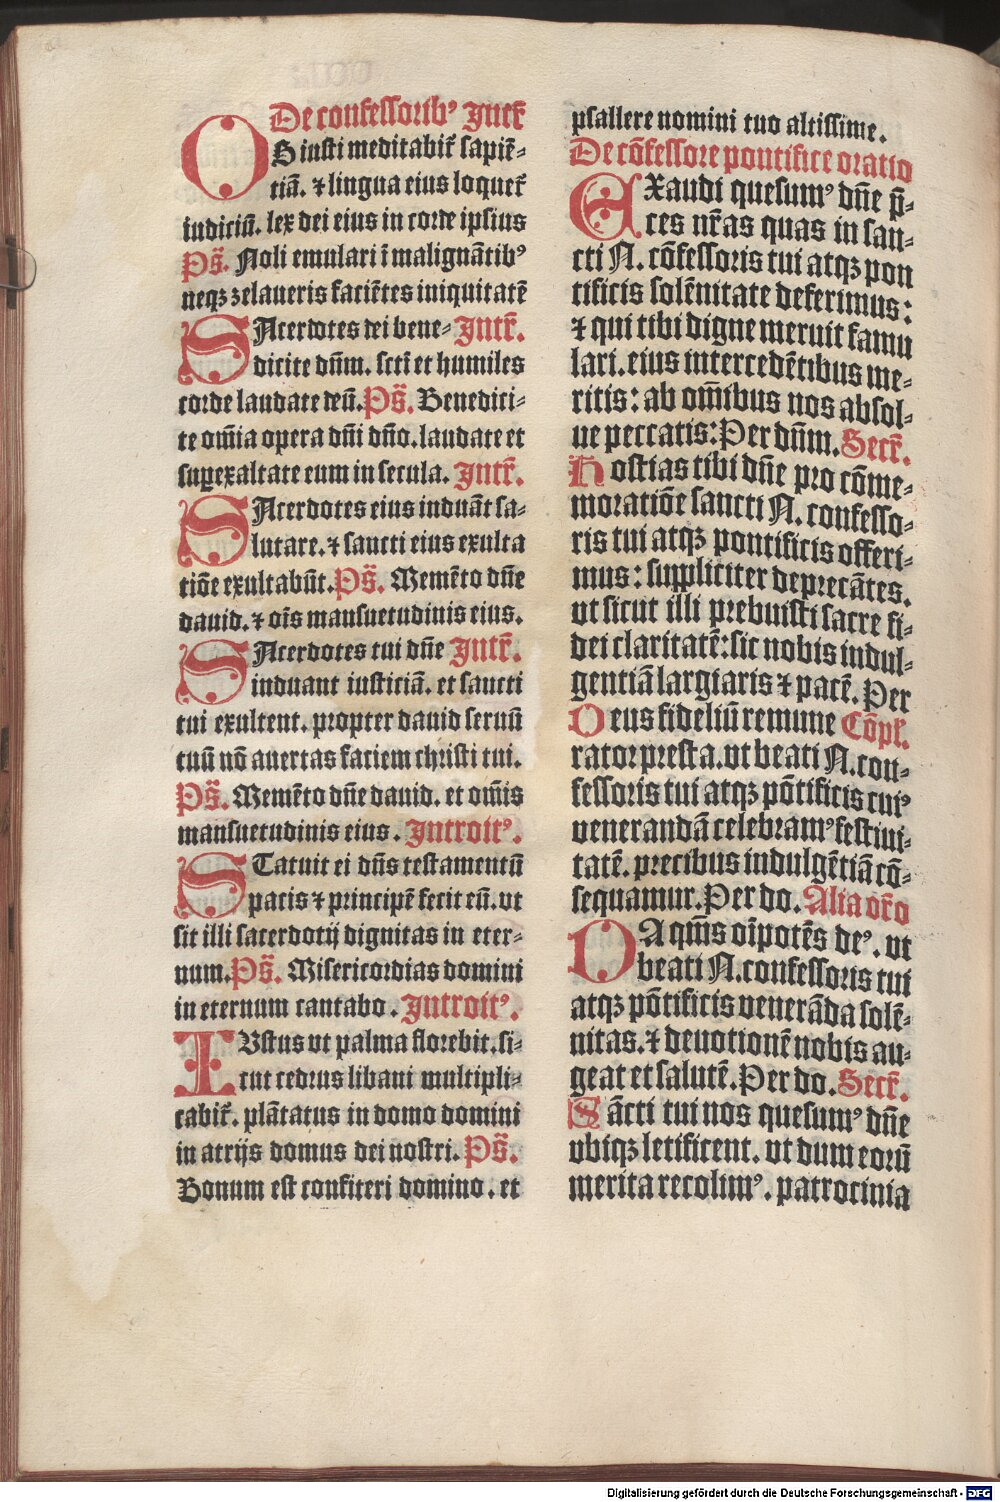 De confessorib⁹ Intr̄
OS iusti meditabit̄ sapiē-
tiā. ⁊ lingua eius loquet̄
iudiciū. lex dei eius in corde ipsius
Ps̄. Noli emulari ī malignātib⁹
neqꝫ zelaueris faciētes iniquitatē
SAcerdotes dei bene- Intr̄.
dicite dn̄m. scti et humiles
corde laudate deū. Ps̄. Benedici-
te om̄ia opera dn̄i dn̄o. laudate et
suꝑexaltate eum in secula. Intr̄.
SAcerdotes eius induāt sa-
lutare. ⁊ sancti eius exulta
tiōe exultabūt. Ps̄. Memēto dn̄e
dauid. ⁊ oīs mansuetudinis eius.
SAcerdotes tui dn̄e Intr̄.
induant iusticiā. et sancti
tui exultent. propter dauid seruū
tuū nō auertas faciem christi tui.
Ps̄. Memēto dn̄e dauid. et om̄is
mansuetudinis eius. Introit⁹.
STatuit ei dn̄s testamentū
pacis ⁊ principē fecit eū. vt
sit illi sacerdotij dignitas in eter-
num. Ps̄. Misericordias domini
in eternum cantabo. Introit⁹.
IVstus vt palma florebit. si-
cut cedrus libani multipli-
cabit̄. plātatus in domo domini
in atrijs domus dei nostri. Ps̄.
Bonum est confiteri domino. et
psallere nomini tuo altissime.
De cōfessore pontifice oratio
EXaudi quesum⁹ dn̄e p̄-
ces nr̄as quas in san-
cti N. cōfessoris tui atqꝫ pon
tificis solēnitate deferimus:
⁊ qui tibi digne meruit famu
lari. eius intercedētibus me-
ritis: ab om̄ibus nos absol-
ue peccatis: Per dn̄m. Secr̄.
Hostias tibi dn̄e pro cōme-
moratiōe sancti N. confesso-
ris tui atqꝫ pontificis offeri-
mus: suppliciter deprecātes.
vt sicut illi prebuisti sacre fi-
dei claritatē: sic nobis indul-
gentiā largiaris ⁊ pacē. Per
Deus fideliū remune Cōpl̄.
rator presta. vt beati N. con-
fessoris tui atqꝫ pōtificis cui⁹
venerandā celebram⁹ festiui-
tatē. precibus indulgētiā cō-
sequamur. Per do. Alia or̄o
DA qm̄s oīpotēs de⁹. vt
beati N. confessoris tui
atqꝫ pōtificis venerāda solē-
nitas. ⁊ deuotionē nobis au-
geat et salutē. Per do. Secr̄.
Sācti tui nos quesum⁹ dn̄e
vbiqꝫ letificent. vt dum eorū
merita recolim⁹. patrocinia
Digitalisierung gefördert durch die Deutsche Forschungsgemeinschaft - DFG